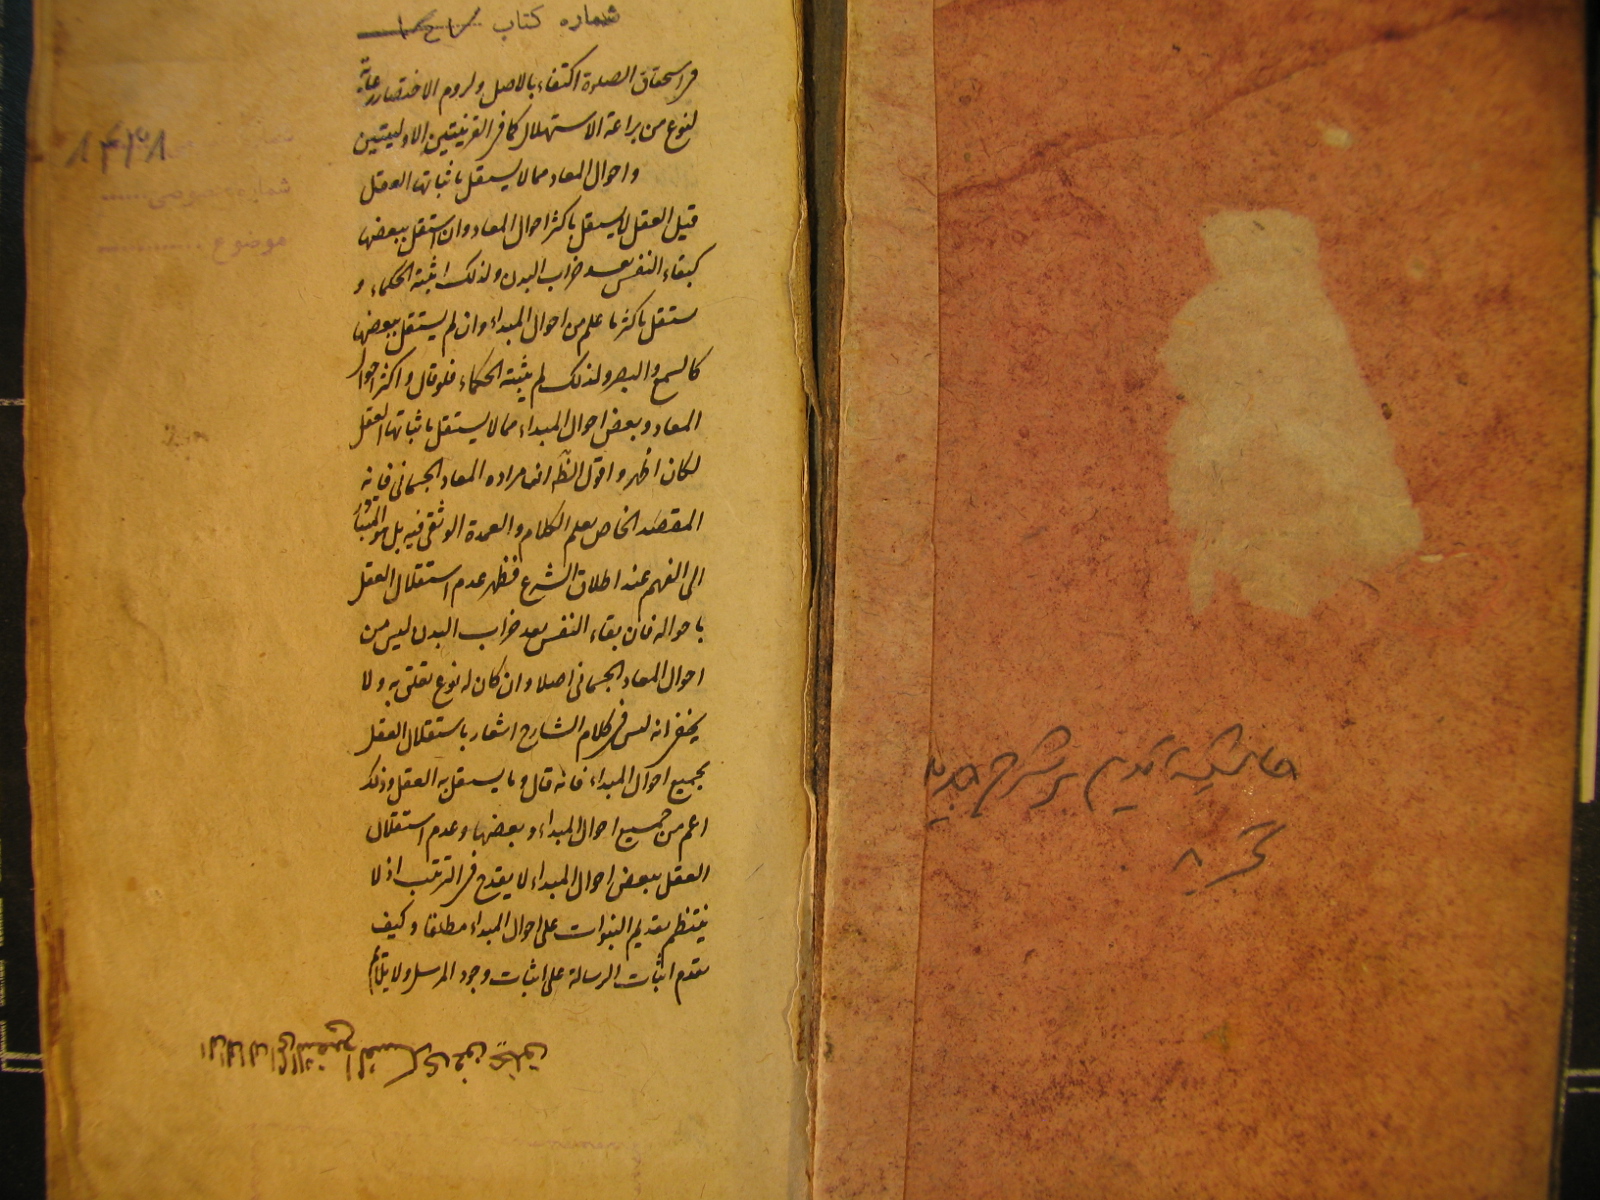 حاشیه قدیم بر شرح جدید
تجرید
شماره کتاب
۱۴۳۸
شماره خصوصی
موضوع
فی استحقاق الصلوة اکتفاء بالاصل ولزوم الاختصار رعایة
لنوع من براعة الاستهلال کما فی القرینتین الاولیتین
واحوال المعاد مما لا یستقل باثباتها العقل
قیل العقل لا یستقل باکثر احوال المعاد وان استقل ببعضها
کبقاء النفس بعد خراب البدن ولذلک اثبته الحکماء و
یستقل باکثر ما علم من احوال المبداء وان لم یستقل ببعضها
کالسمع والبصر ولذلک لم یثبته الحکماء فلو قال واکثر احوال
المعاد وبعض احوال المبداء مما لا یستقل باثباتها العقل
لکان اظهر واقول الظ ان مراده المعاد الجسمانی فانه
المقصد الخاص بعلم الکلام والعمدة الوثقی فیه بل هو المتبادر
الی الفهم عند اطلاق الشرع فظهر عدم استقلال العقل
باحواله فان بقاء النفس بعد خراب البدن لیس من
احوال المعاد الجسمانی اصلا وان کان له نوع تعلق به ولا
یخفی انه لیس فی کلام الشارح اشعار باستقلال العقل
بجمیع احوال المبداء فانه قال وما یستقل به العقل وذلک
اعم من جمیع احوال المبداء وبعضها وعدم استقلال
العقل ببعض احوال المبداء لا یقدح فی الترتیب اذ لا
ینتظم تقدیم النبوات علی احوال المبداء مطلقا وکیف
یقدم اثبات الرسالة علی اثبات وجود المرسل ولا یتلائم